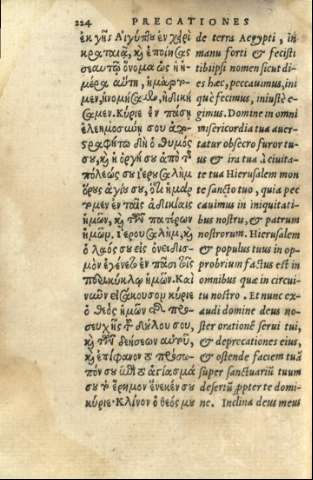 224 PRECATIONES
ἐκ γῆς Αἰγύπτου ἐν χειρὶ
κραταιᾷ, καὶ ἐποίησας
σεαυτῷ ὄνομα ὡς ἡ ἡ-
μέρα αὕτη, ἡμάρτο-
μεν, ἠνομήσαμεν, ἠδική
σαμεν. Κύριε ἐν πάσῃ
ἐλεημοσύνῃ σου ἀπο-
στραφήτω δὴ ὁ θυμός
σου, καὶ ἡ ὀργή σου ἀπὸ τ͂
πόλεώς σου ἱερουσαλὴμ
ὄρους ἁγίου σου, ὅτι ἡμάρ
τομεν ἐν ταῖς ἀδικίαις
ἡμῶν, καὶ τῶν πατέρων
ἡμῶν. ἱερουσαλὴμ, καὶ
ὁ λαός σου εἰς ὀνειδισ-
μὸν ἐγένετο ἐν πᾶσι τοῖς
περικύκλῳ ἡμῶν. Καὶ
νῦν εἰσάκουσον κύριε
ὁ θεὸς ἡμῶν τῆς προ-
σευχῆς τοῦ δούλου σου,
καὶ τῶν δεήσεων αὐτοῦ,
καὶ ἐπίφανον τὸ πρόσω-
πόν σου ἐπὶ τὸ ἁγίασμά
σου τὸ ἔρημον ἕνεκέν σου
κύριε. Κλῖνον ὁ θεός μου
de terra Aegypti, in
manu forti & fecisti
tibiipsi nomen sicut di-
es hæc, peccauimus, ini
què fecimus, iniustè e-
gimus. Domine in omni
misericordia tua auer-
tatur obsecro furor tu-
us & ira tua à ciuita-
te tua Hierusalem mon
te sancto tuo, quia pec
cauimus in iniquitati-
bus nostris, & patrum
nostrorum. Hierusalem
& populus tuus in op-
probrium factus est in
omnibus quæ in circui-
tu nostro. Et nunc ex-
audi domine deus no-
ster orationē serui tui,
& deprecationes eius,
& ostende faciem tuā
super sanctuariū tuum
desertū ꝓpter te domi-
ne. Inclina deus meus